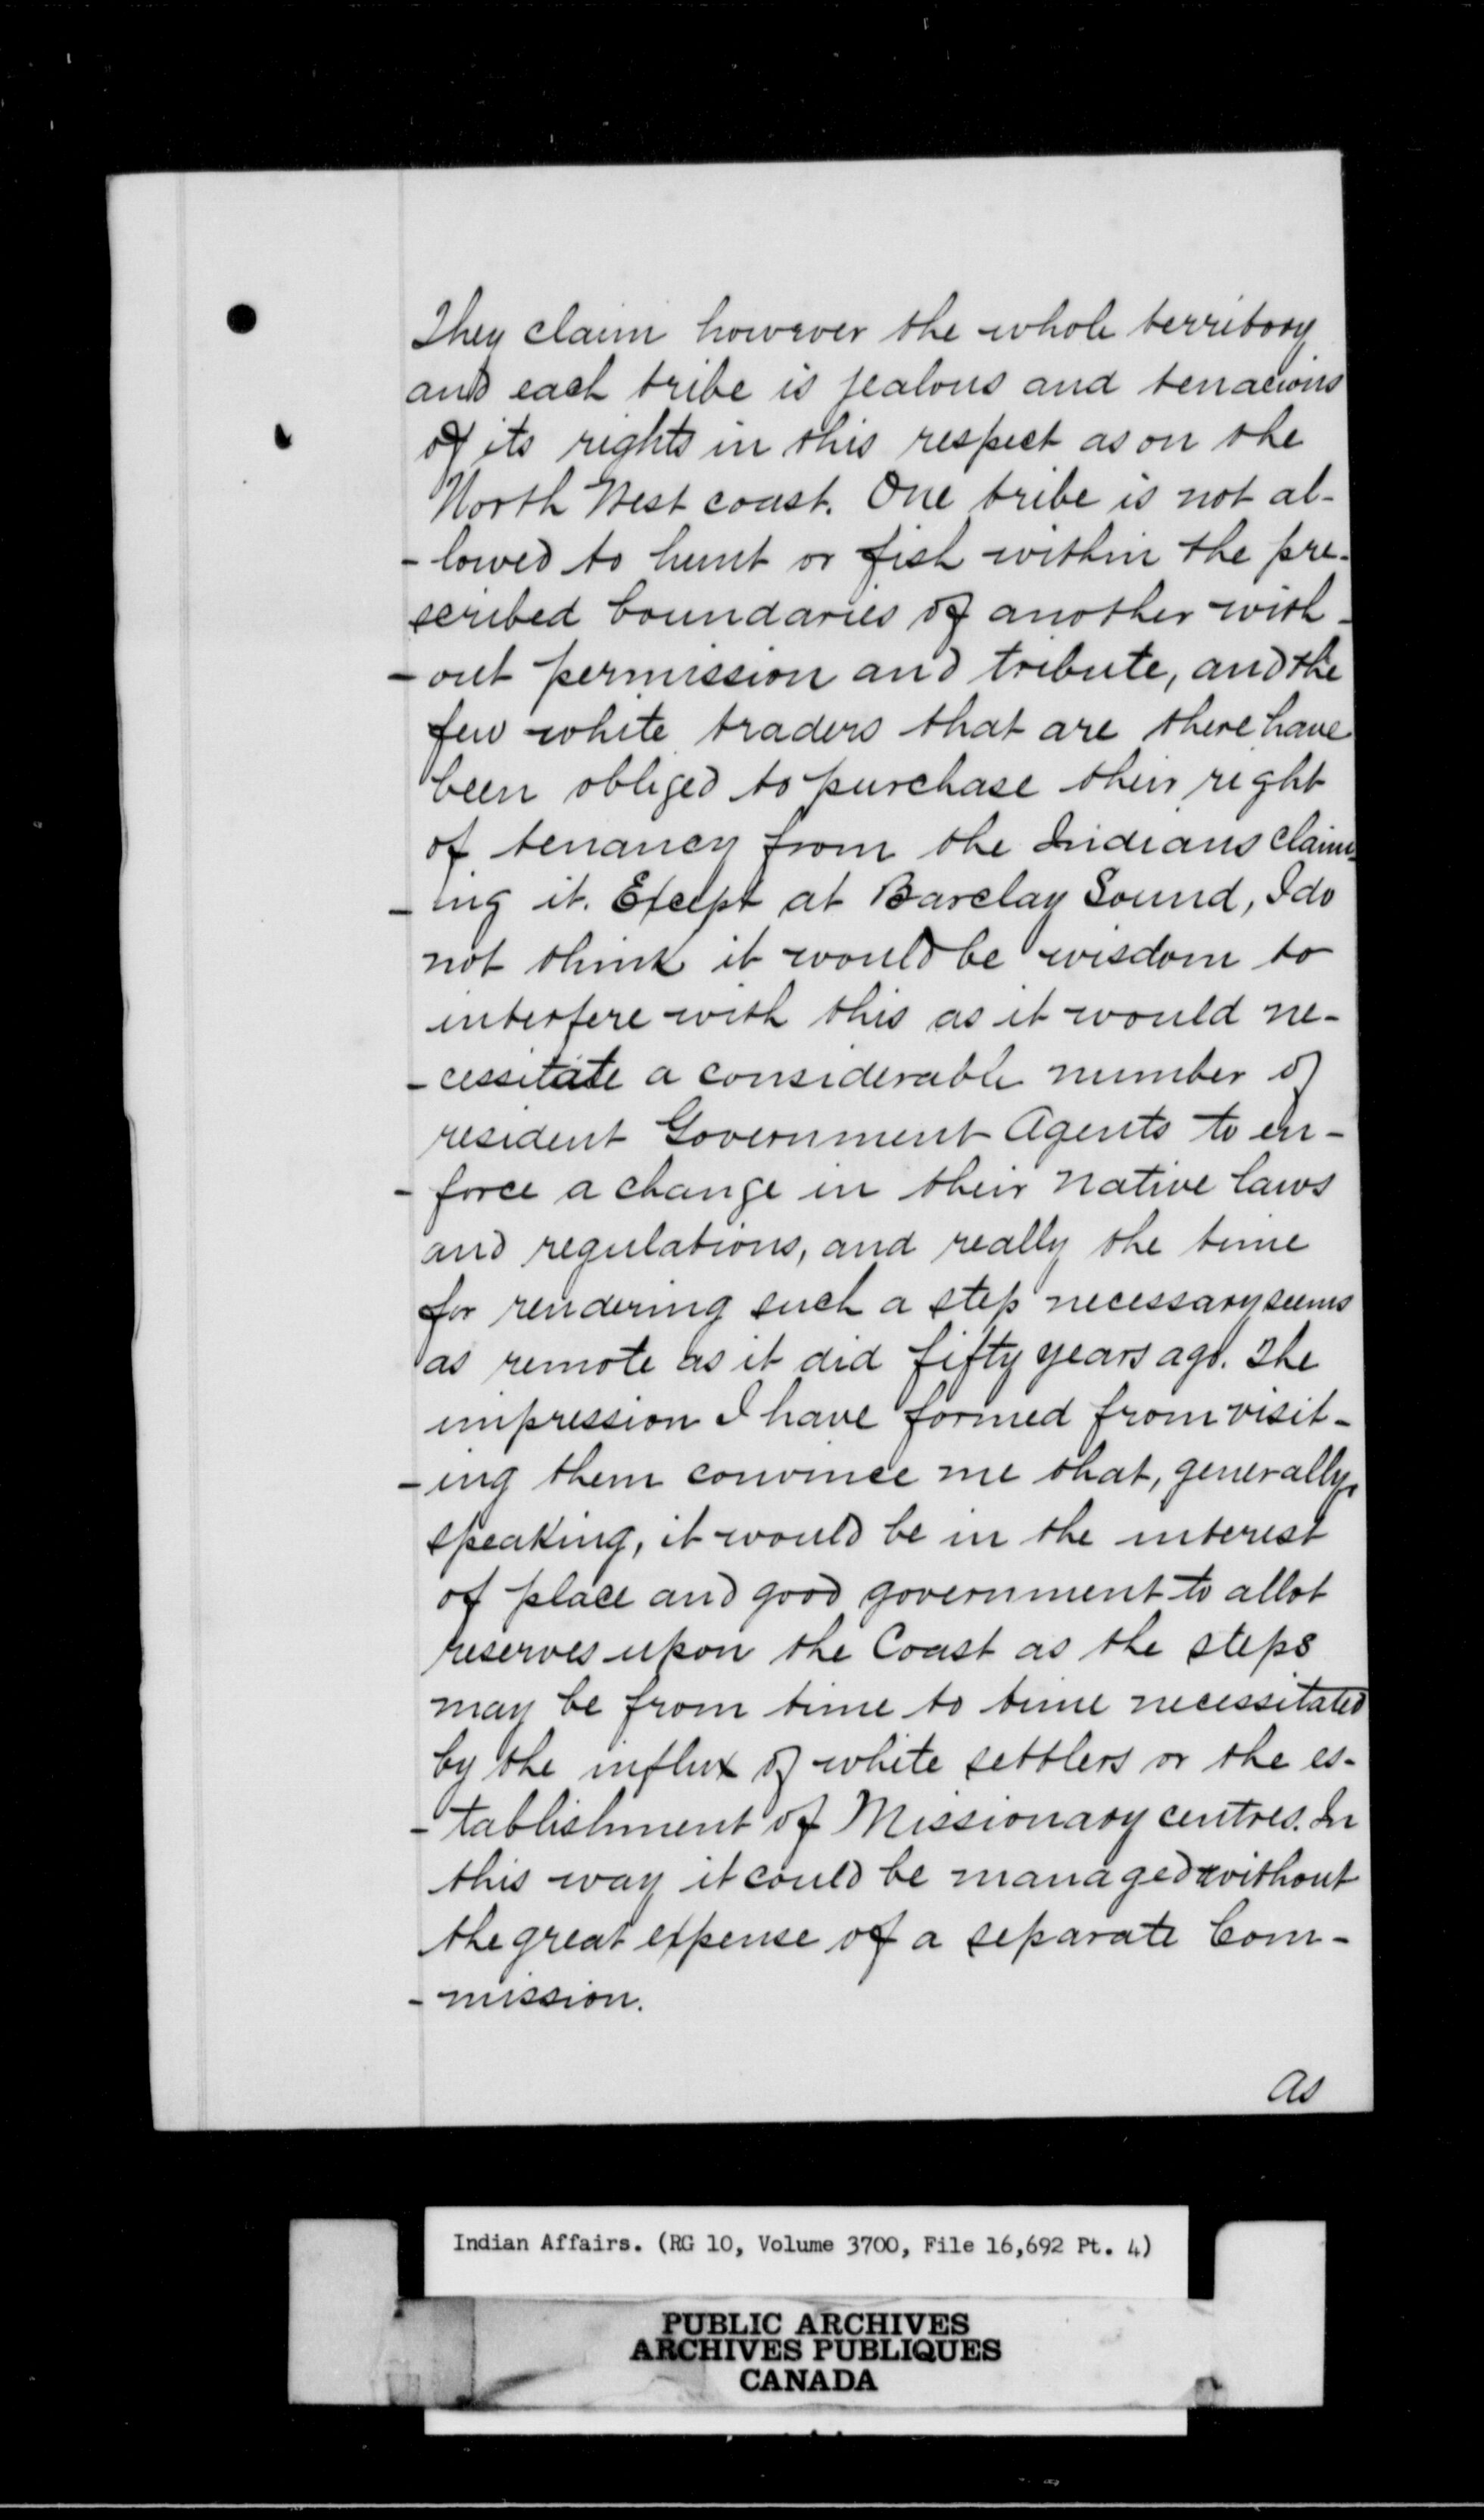 They claim however the whole territory
and each tribe is jealous and tenacious
of its rights in this respect as on the
North West coast. One tribe is not al-
- lowed to hunt or fish within the pre-
scribed boundaries of another with -
- out permission and tribute, and the
few white traders that are there have
been obliged to purchase their right
of tenancy from the Indians claim-
- ing it. Except at Barclay Sound, I do
not think it would be wisdom to
interfere with this as it would ne-
- cessitate a considerable number of
resident Government Agents to en-
- force a change in their native laws
and regulations, and really the time
for rendering such a step necessary seems
as remote as it did fifty years ago. The
impression I have formed from visit-
- ing them convince me that, generally
speaking, it would be in the interest
of place and good government to allot
reserves upon the Coast as the steps
may be from time to time necessitated
by the influx of white settlers or the es-
- tablishment of Missionary centres. In
this way it could be managed without
the great expense of a separate Com-
- mission.
As
Indian Affairs. (RG 10, Volume 3700, File 16,692 Pt. 4)
PUBLIC ARCHIVES
ARCHIVES PUBLIQUES
CANADA